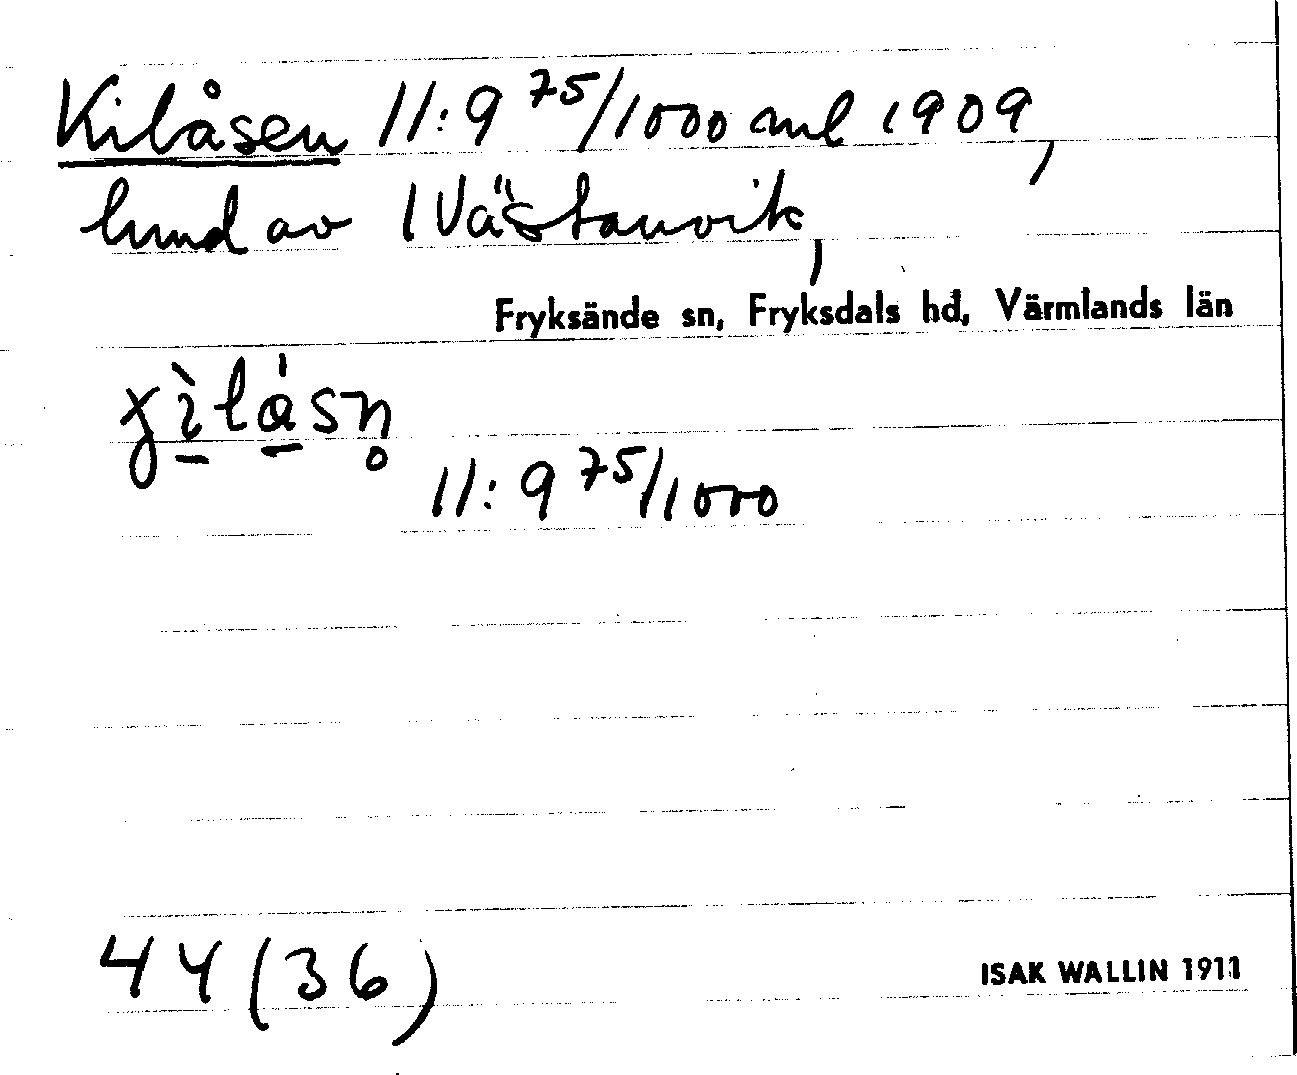 Kilåsen 11:9 75/1000 ml 1909,
hmd av 1 Västanvik,
Fryksände sn, Fryksdals hd, Värmlands län
11:9 75/1000
44 (36)
ISAK WALLIN 1911